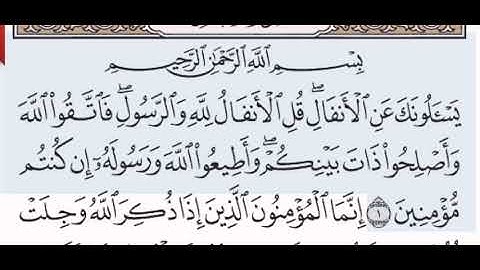 بِسْمِ ٱللَّهِ ٱلرَّحْمَٰنِ ٱلرَّحِيمِ
يَسْـَٔلُونَكَ عَنِ ٱلْأَنفَالِ ۖ قُلِ ٱلْأَنفَالُ لِلَّهِ وَٱلرَّسُولِ ۖ فَٱتَّقُوا۟ ٱللَّهَ
وَأَصْلِحُوا۟ ذَاتَ بَيْنِكُمْ ۖ وَأَطِيعُوا۟ ٱللَّهَ وَرَسُولَهُۥٓ إِن كُنتُم
مُّؤْمِنِينَ ١ إِنَّمَا ٱلْمُؤْمِنُونَ ٱلَّذِينَ إِذَا ذُكِرَ ٱللَّهُ وَجِلَتْ